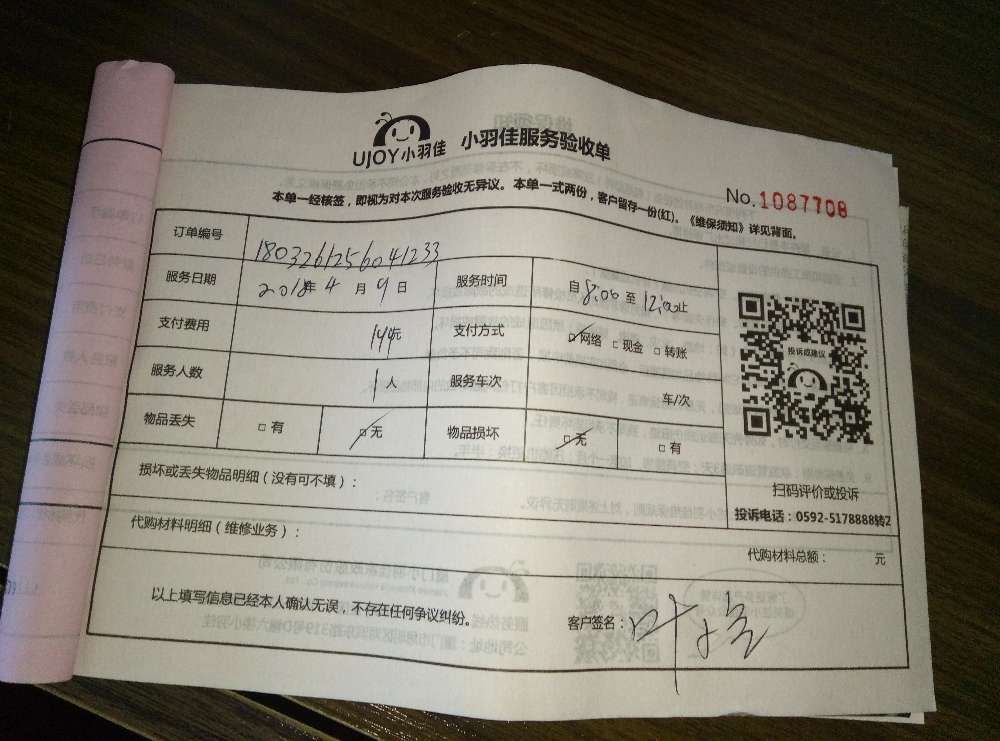 UJOY小羽佳 小羽佳服务验收单
No.1087708
本单一经核签，即视为对本次服务验收无异议。本单一式两份，客户留存一份(红)。《维保须知》详见背面。
订单编号 1803261256041233
服务日期 2018年 4 月 9 日 服务时间 自 8:00 至 12:00止
支付费用 144元 支付方式 ☑网络 □现金 □转账
服务人数 1 人 服务车次 车/次
物品丢失 □有 ☑无 物品损坏 ☑无 □有
投诉或建议
损坏或丢失物品明细（没有可不填）：
扫码评价或投诉
投诉电话：0592-5178888转2
代购材料明细（维修业务）：
代购材料总额： 元
以上填写信息已经本人确认无误，不存在任何争议纠纷。
客户签名：叶